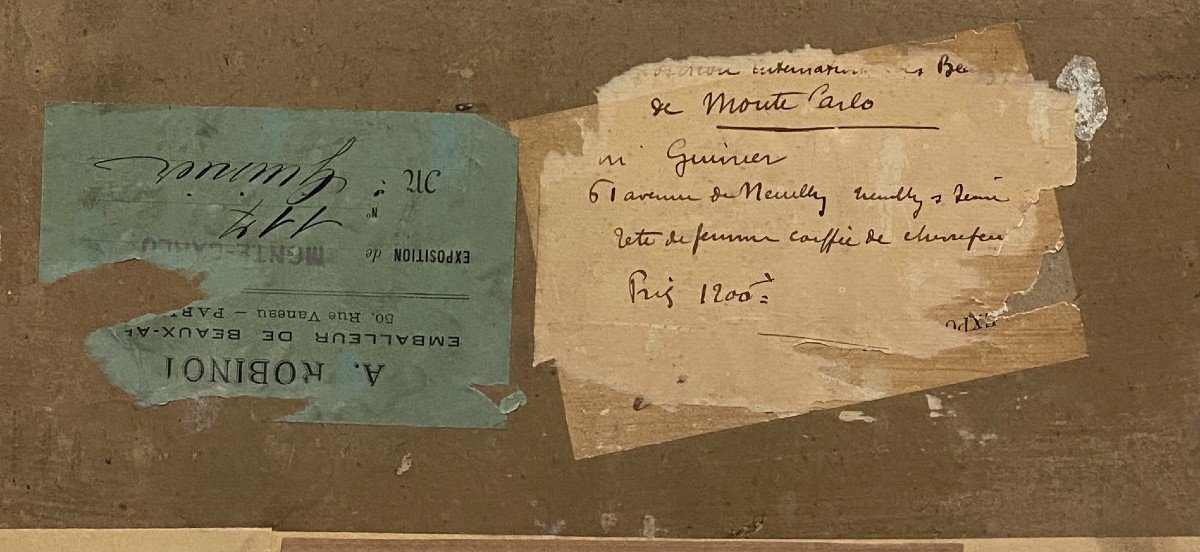 A. ROBINO
EMBALLEUR DE BEAUX-A
50, Rue Vaneau — PAR
EXPOSITION de MONTE-CARLO
N° 117
M. Guinier
internation Bea
de Monte Carlo
Mr Guinier
61 avenue de Neuilly neuilly s Seine
Tete de femme coiffée de chevrefeu
Prix 1200
EXPO